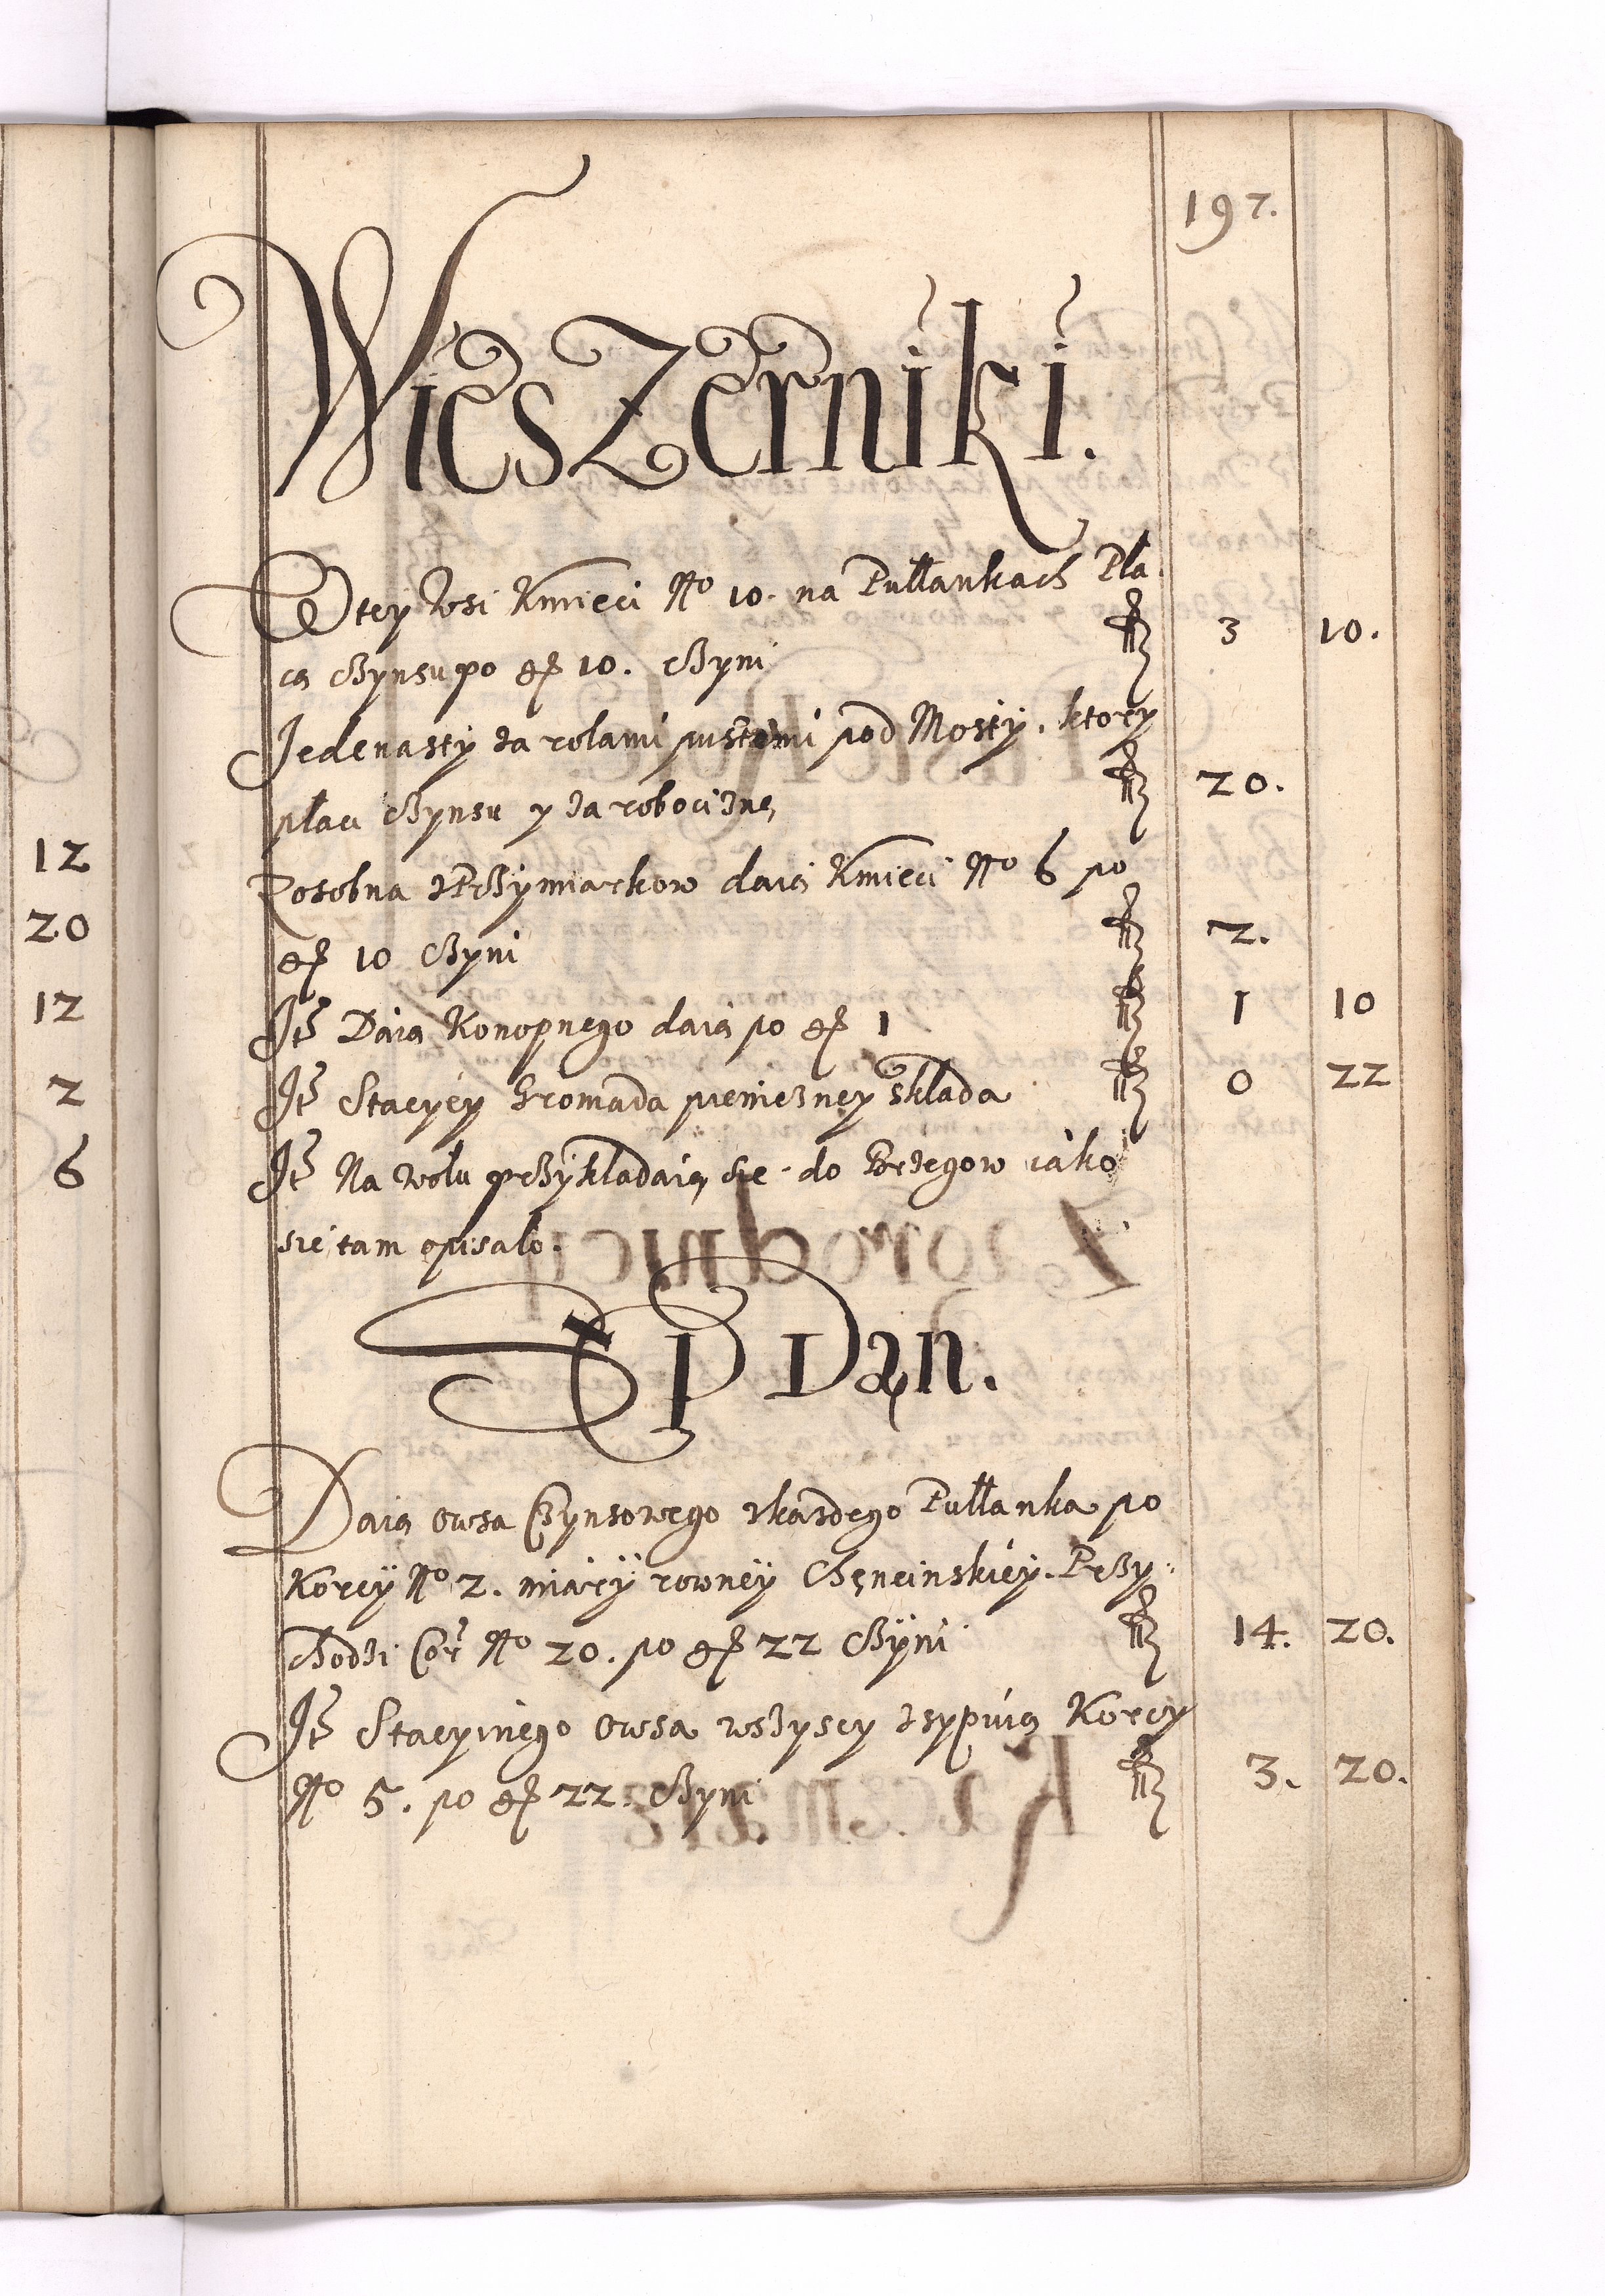 197.
WiesZerniki.
W tey wsi Kmieci No 10. na Pułłankach Pła
cą Czynsu po gr 10. Czyni fl 3 10.
Jedenasty za rolami pustemi pod Mosty. ktory
płaci Czynsu y za robociznę fl 20.
Zosobna z Przymiarkow daią Kmieci No 6 po
gr 10 Czyni fl 2.
Itm Dąnia Konopnego daią po gr 1 fl 1 10
Itm Stacyey Gromada pieniezney składa fl 0 22
Itm Na wołu przykładaią sie do Brzegow iako
sie tam opisało.
SP Dąn.
Daią owsa Czynsowego zkazdego Pułłanka po
Korcy No 2. miary rowney Chęncinskiey. Przy
chodzi Cor No 20. po gr 22 Czyni fl 14. 20.
Itm Stacyinego owsa wszyscy zsypuią Korcy
No 5. po gr 22. Czyni fl 3. 20.
12
20
12
2
6